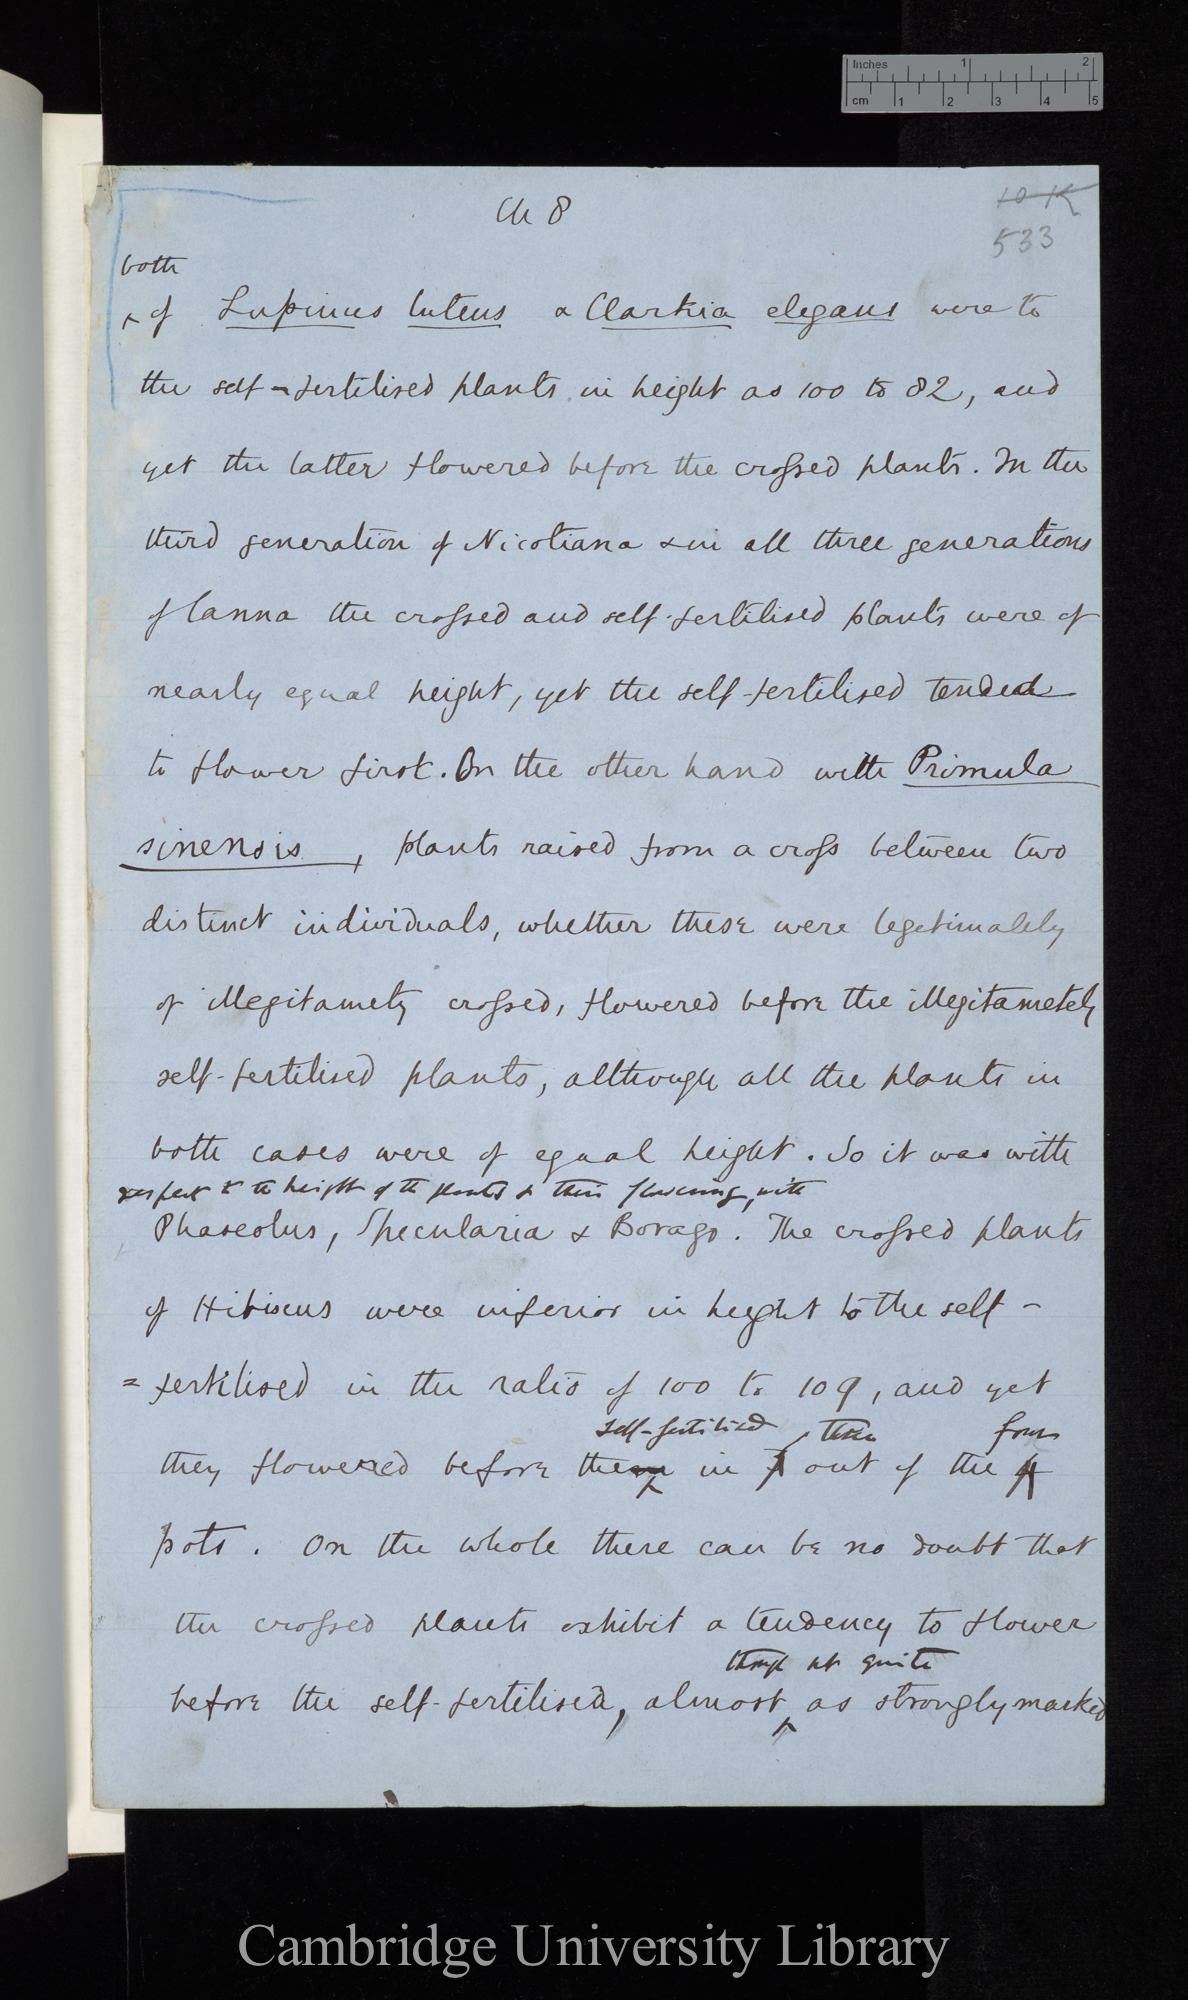 Inches 1 2
cm 1 2 3 4 5
Ch 8
10 K
533
both
^ of Lupinus luteus & Clarkia elegans were to
the self-fertilised plants in height as 100 to 82, and
yet the latter flowered before the crossed plants. In the
third generation of Nicotiana & in all three generations
of Canna the crossed and self-fertilised plants were of
nearly equal height, yet the self-fertilised tended
to flower first. On the other hand with Primula
sinensis, plants raised from a cross between two
distinct individuals, whether these were legetimately
or illegitamety crossed, flowered before the illegitametely
self-fertilised plants, although all the plants in
both cases were of equal height. So it was with
respect to the height of the plants & their flowering, with
Phaseolus, Specularia & Borago. The crossed plants
of Hibiscus were inferior in height to the self-
=fertilised in the ratio of 100 to 109, and yet
self-fertilised three four
they flowered before them in 3 out of the 4
pots. On the whole there can be no doubt that
the crossed plants exhibit a tendency to flower
though not quite
before the self-fertilised, almost ^ as strongly marked
Cambridge University Library